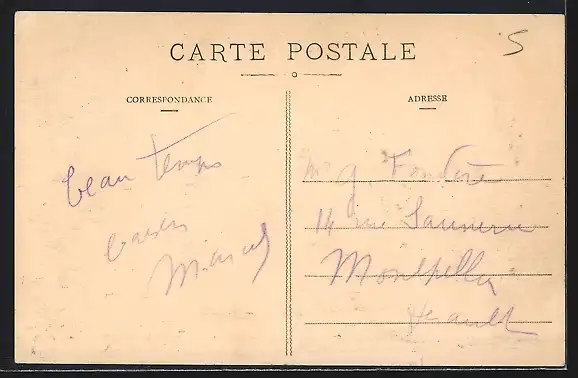 S
CARTE POSTALE
CORRESPONDANCE
ADRESSE
beau temps
baisers
Marcel
Mr G. Fonderé
14 rue Saunerie
Montpellier
Hérault